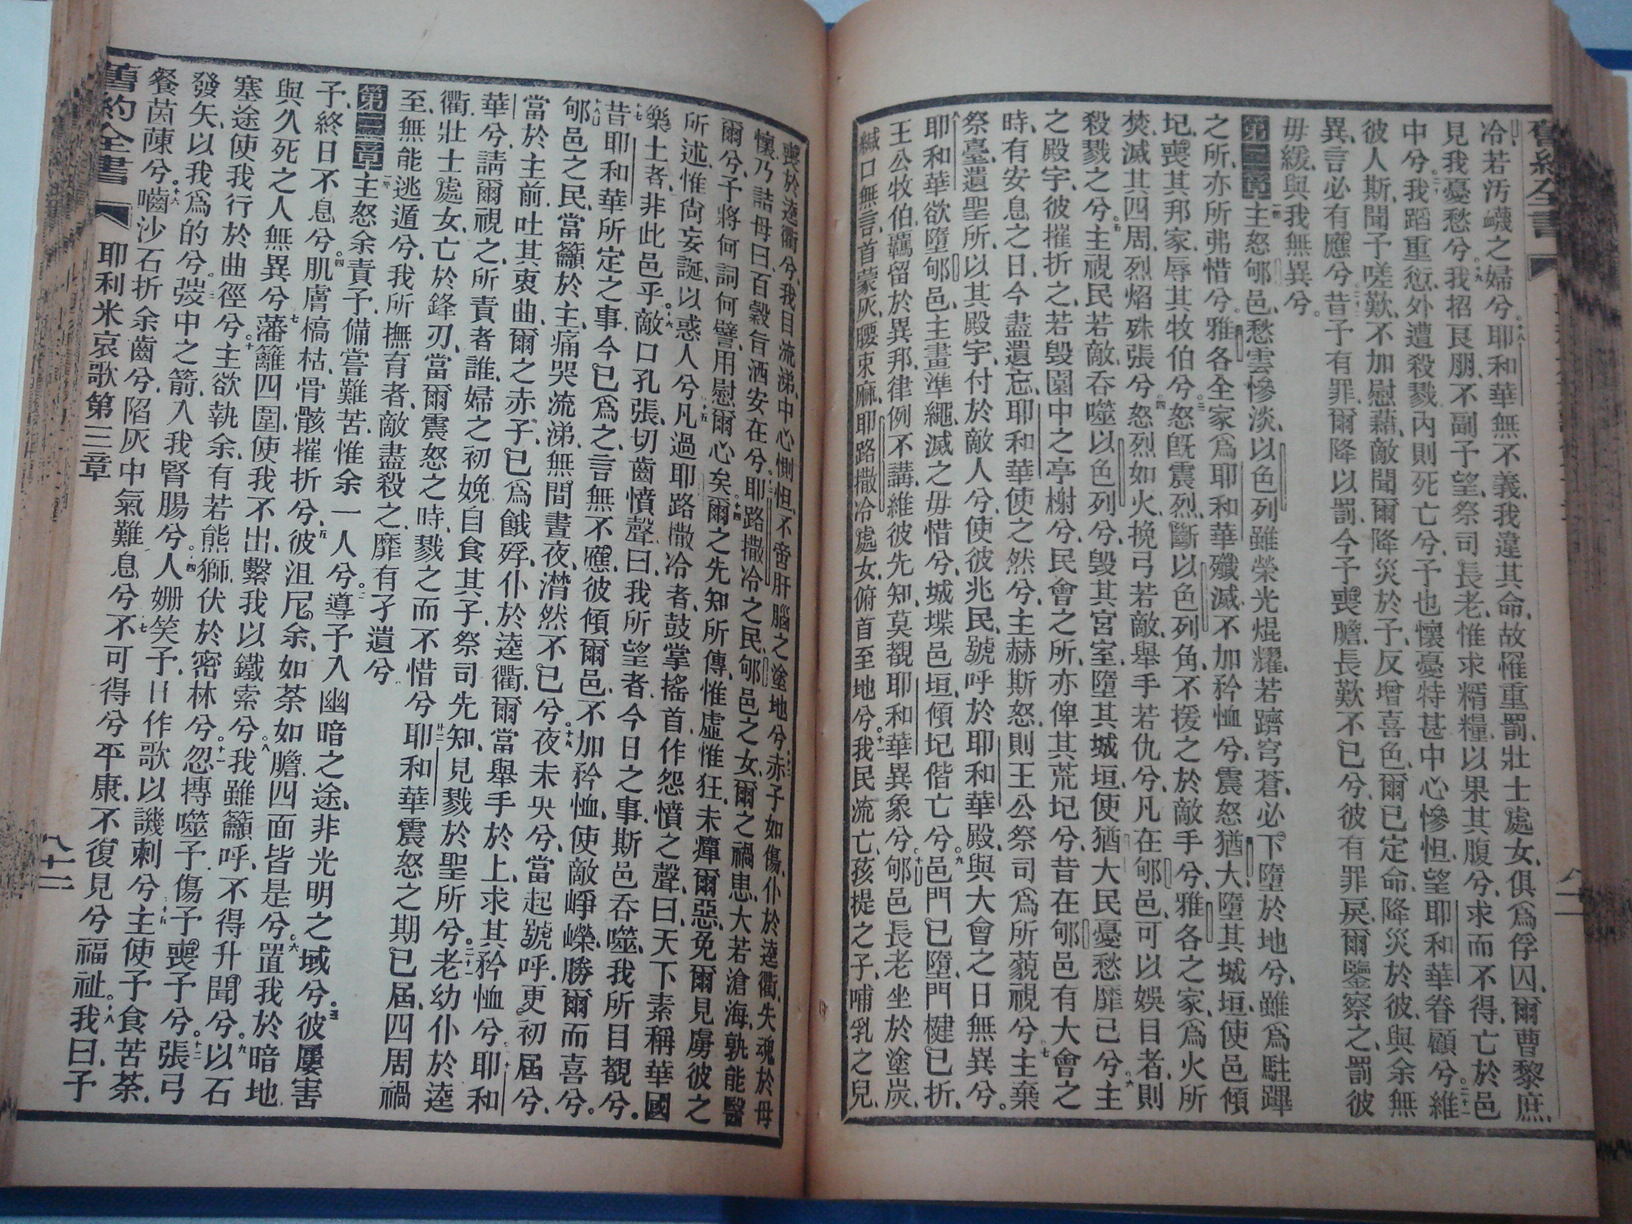 冷若汚衊之婦兮耶和華無不義我違其命故罹重罰壯士處女俱爲俘囚爾曹黎庶
見我憂愁兮我招良朋不副予望祭司長老惟求糈糧以果其腹兮求而不得亡於邑
中兮我蹈重愆外遭殺戮內則死亡兮予也懷憂特甚中心慘怛望耶和華眷顧兮維
彼人斯聞予嗟歎不加慰藉敵聞爾降災於予反增喜色爾已定命降災於彼與余無
異言必有應兮昔予有罪爾降以罰今予喪膽長歎不已兮彼有罪戾爾鑒察之罰彼
毋緩與我無異兮
第二章主怒郇邑愁雲慘淡以色列雖榮光焜耀若躋穹蒼必下墮於地兮雖爲駐蹕
之所亦所弗惜兮雅各全家爲耶和華殲滅不加矜恤兮震怒猶大墮其城垣使邑傾
圮喪其邦家辱其牧伯兮怒旣震烈斷以色列角不援之於敵手兮雅各之家爲火所
焚滅其四周烈焰殊張兮怒烈如火挽弓若敵舉手若仇兮凡在郇邑可以娛目者則
殺戮之兮主視民若敵吞噬以色列兮毀其宮室墮其城垣使猶大民憂愁靡已兮主
之殿宇彼摧折之若毀園中之亭榭兮民會之所亦俾其荒圮兮昔在郇邑有大會之
時有安息之日今盡遺忘耶和華使之然兮主赫斯怒則王公祭司爲所藐視兮主棄
祭臺遺聖所以其殿宇付於敵人兮使彼兆民號呼於耶和華殿與大會之日無異兮
耶和華欲墮郇邑主畫準繩滅之毋惜兮城堞邑垣傾圮偕亡兮邑門已墮門楗已折
王公牧伯羈留於異邦律例不講維彼先知莫覩耶和華異象兮郇邑長老坐於塗炭
緘口無言首蒙灰腰束麻耶路撒冷處女俯首至地兮我民流亡孩提之子哺乳之兒
喪於逵衢兮我目流涕中心惻怛不啻肝腦之塗地兮赤子如傷仆於逵衢失魂於母
懷乃詰母曰百穀旨酒安在兮耶路撒冷之民郇邑之女爾之禍患大若滄海孰能醫
爾兮予將何詞何譬用慰爾心矣爾之先知所傳惟虛惟狂未癉爾惡免爾見虜彼之
所述惟尙妄誕以惑人兮凡過耶路撒冷者鼓掌搖首作怨憤之聲曰天下素稱華國
樂土者非此邑乎敵口孔張切齒憤聲曰我所望者今日之事斯邑吞噬我所目覩兮
昔耶和華所定之事今已爲之言無不應彼傾爾邑不加矜恤使敵崢嶸勝爾而喜兮
郇邑之民當籲於主痛哭流涕無間晝夜潸然不已兮夜未央兮當起號呼更初屆兮
當於主前吐其衷曲爾之赤子已爲餓殍仆於逵衢爾當舉手於上求其矜恤兮耶和
華兮請爾視之所責者誰婦之初娩自食其子祭司先知見戮於聖所兮老幼仆於逵
衢壯士處女亡於鋒刃當爾震怒之時戮之而不惜兮耶和華震怒之期已屆四周禍
至無能逃遁兮我所撫育者敵盡殺之靡有孑遺兮
第三章主怒余責予備嘗難苦惟余一人兮導予入幽暗之途非光明之域兮彼屢害
子終日不息兮肌膚槁枯骨骸摧折兮彼沮厄余如荼如膽四面皆是兮置我於暗地
與久死之人無異兮藩籬四圍使我不出繫我以鐵索兮我雖籲呼不得升聞兮以石
塞途使我行於曲徑兮主欲執余有若熊獅伏於密林兮忽摶噬予傷予喪予兮張弓
發矢以我爲的兮彀中之箭入我腎腸兮人姍笑予日作歌以譏刺兮主使予食苦荼
餐茵蔯兮嚙沙石折余齒兮陷灰中氣難息兮不可得兮平康不復見兮福祉我曰予
舊約全書 耶利米哀歌第三章 八十二